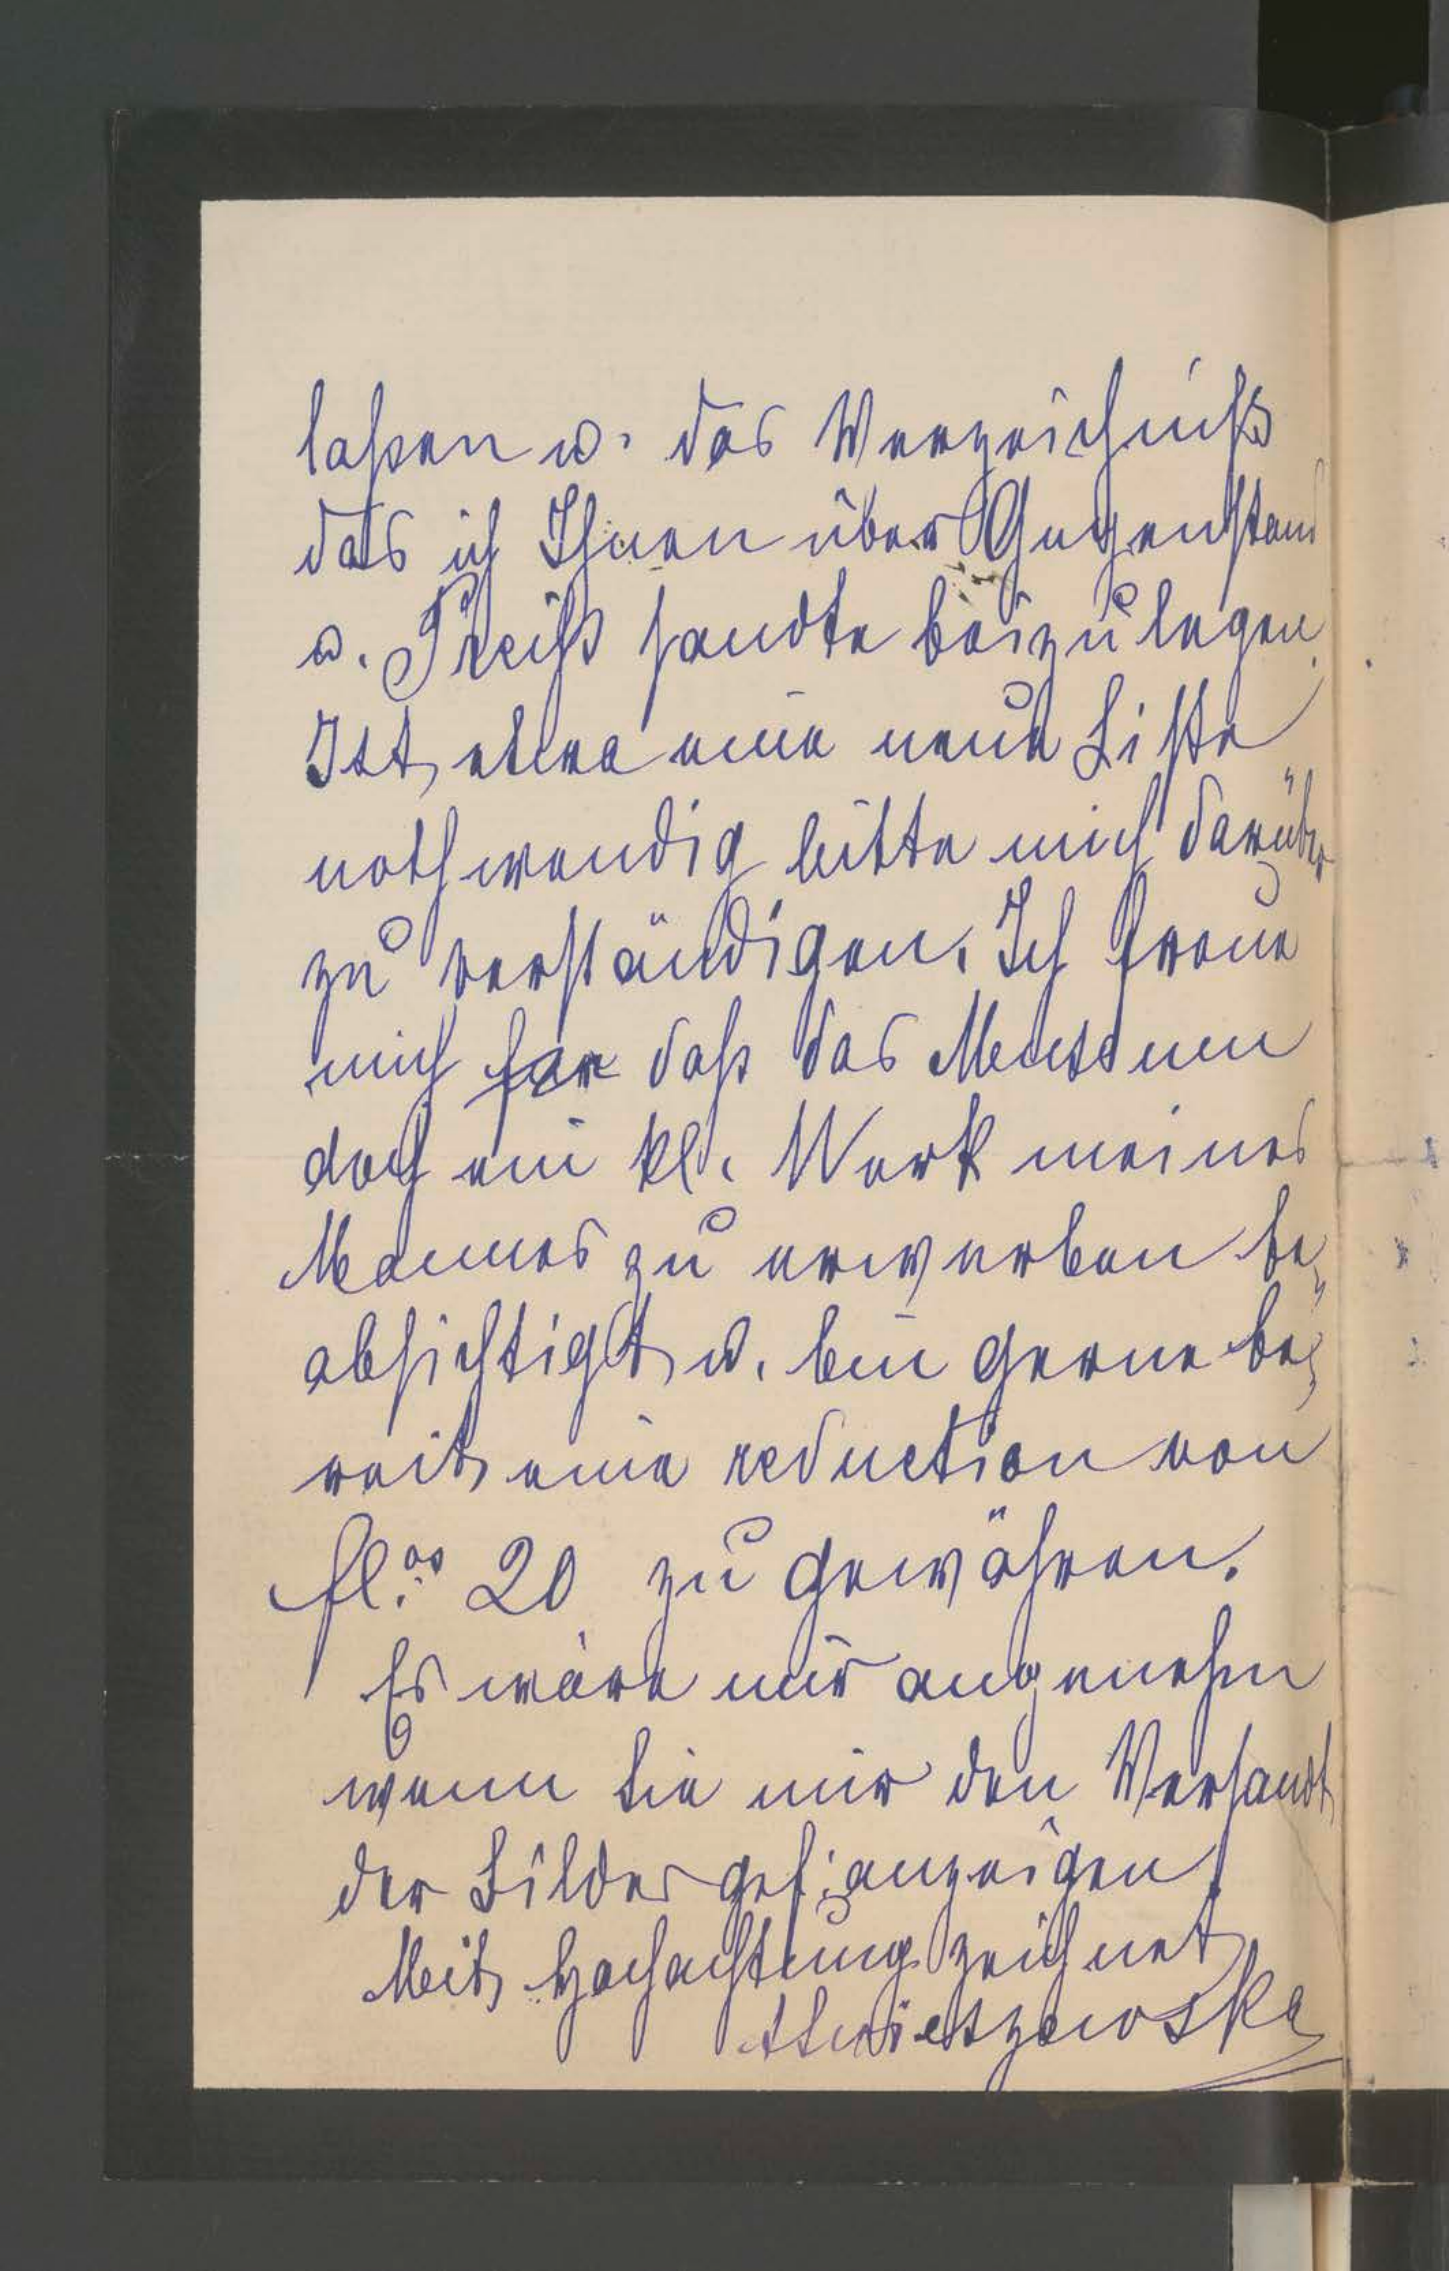 laßen u. das Verzeichniß
das ich Ihnen über Gegenstand
u. Preiß sandte beizulegen.
Ist etwa eine neue Liste
nothwendig bitte mich darüber
zu verständigen. Ich freue
mich daß das Museum
doch ein kl. Werk meines
Mannes zu erwerben be„
absichtigt u. bin gerne be„
reit eine reduction von
fl. 20 zu gewähren.
Es wäre mir angenehm
wenn Sie mir den Versandt
der Bilder gef: anzeigen.
Mit Hochachtung zeichnet